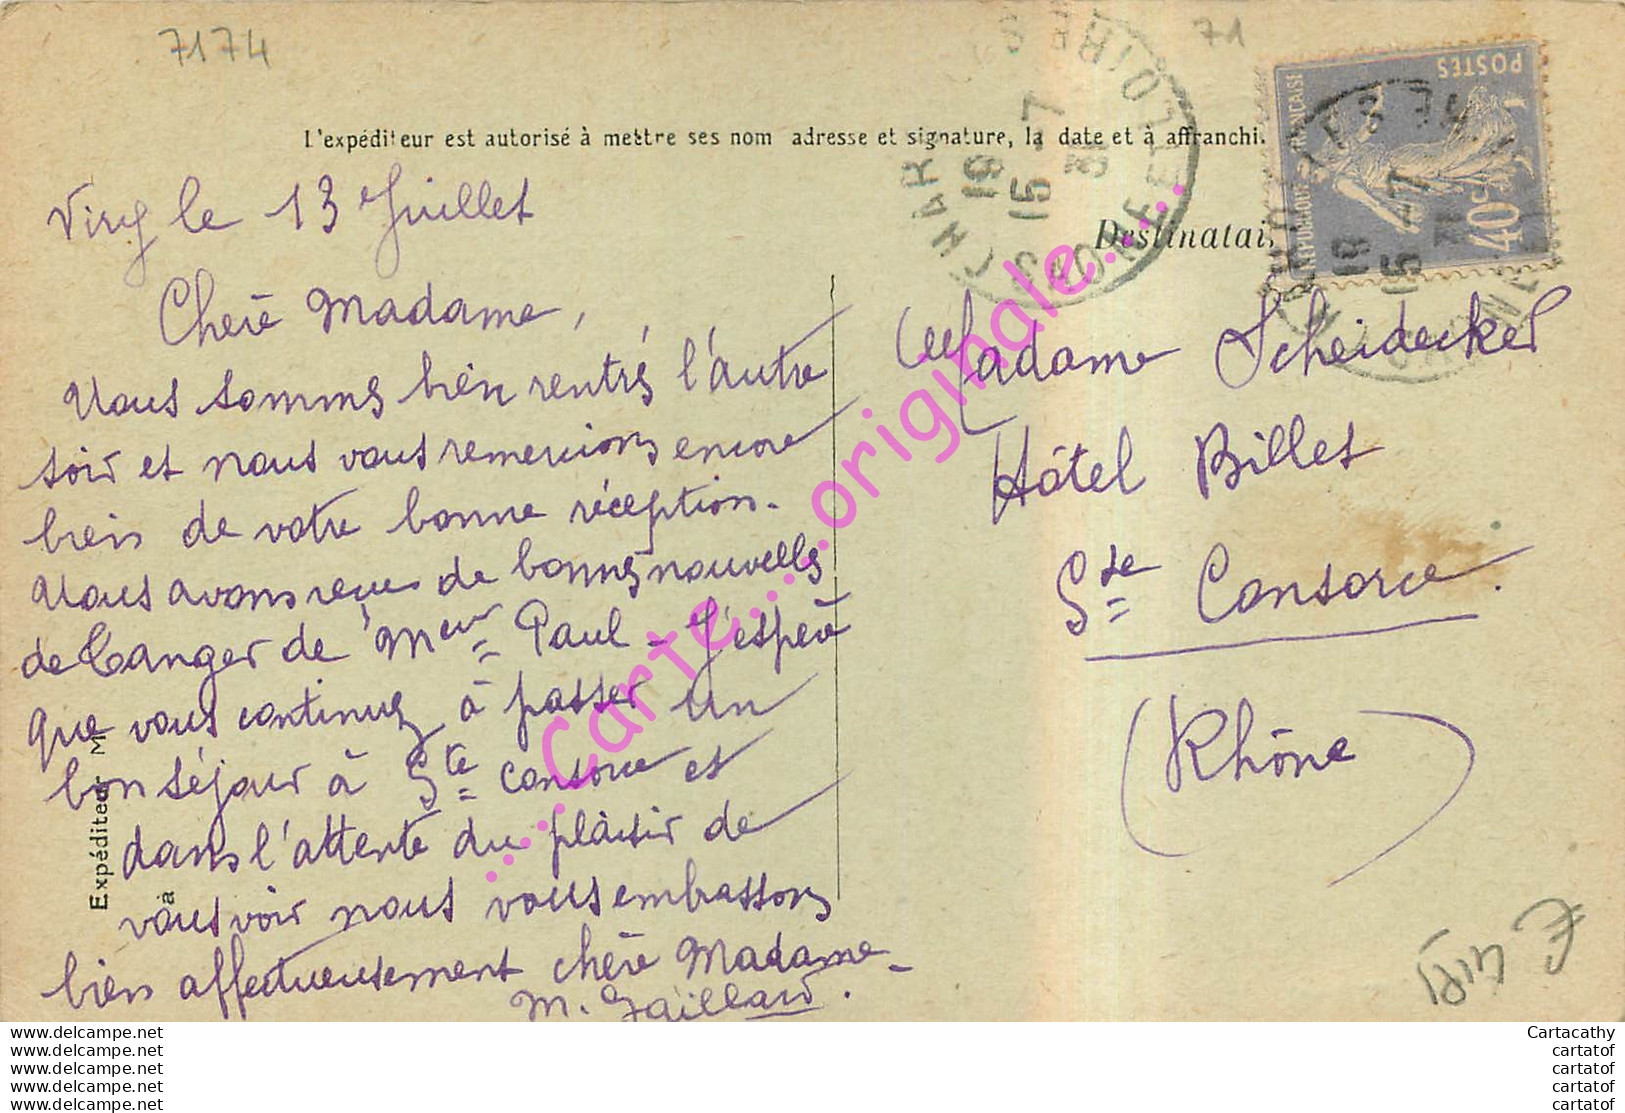 7174
71
L'expéditeur est autorisé à mettre ses nom adresse et signature, la date et à affranchi.
POSTES
REPUBLIQUE FRANÇAISE
40c
CHAROLLES
SAONE ET LOIRE
19
15 -7
31
Destinatai
Viry le 13 Juillet
Chère Madame,
Nous sommes bien rentrés l'autre
soir et nous vous remercions encore
bien de votre bonne réception.
Nous avons reçu de bonnes nouvelles
de Tanger de Meur Paul - J'espère
que vous continuez à passer un
bon séjour à Ste Consorce et
dans l'attente du plaisir de
vous voir nous vous embrassons
bien affectueusement chère Madame
M. Gaillard.
Madame Scheidecker
Hôtel Billet
Ste Consorce.
(Rhône)
Expéditeur M
à
...Carte....originale....
www.delcampe.net
www.delcampe.net
www.delcampe.net
www.delcampe.net
www.delcampe.net
Cartacathy
cartatof
cartatof
cartatof
cartatof